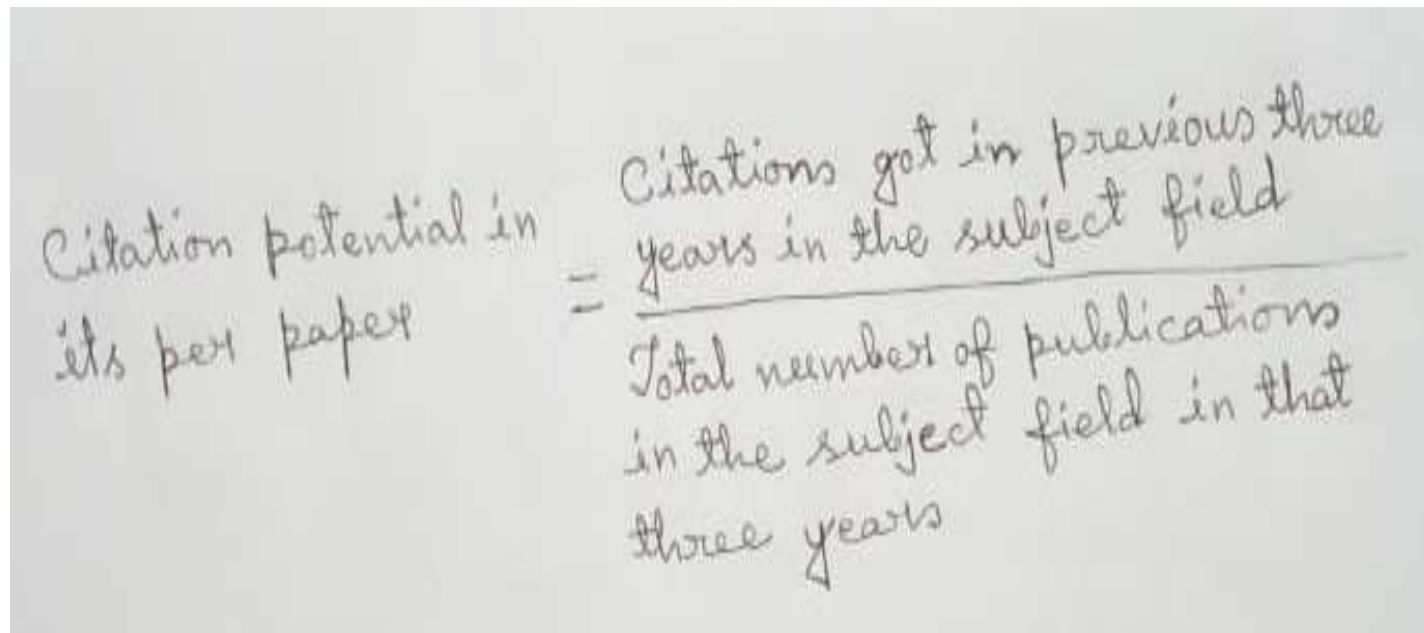 Citation potential in
its per paper
=
Citations got in previous three
years in the subject field
Total number of publications
in the subject field in that
three years